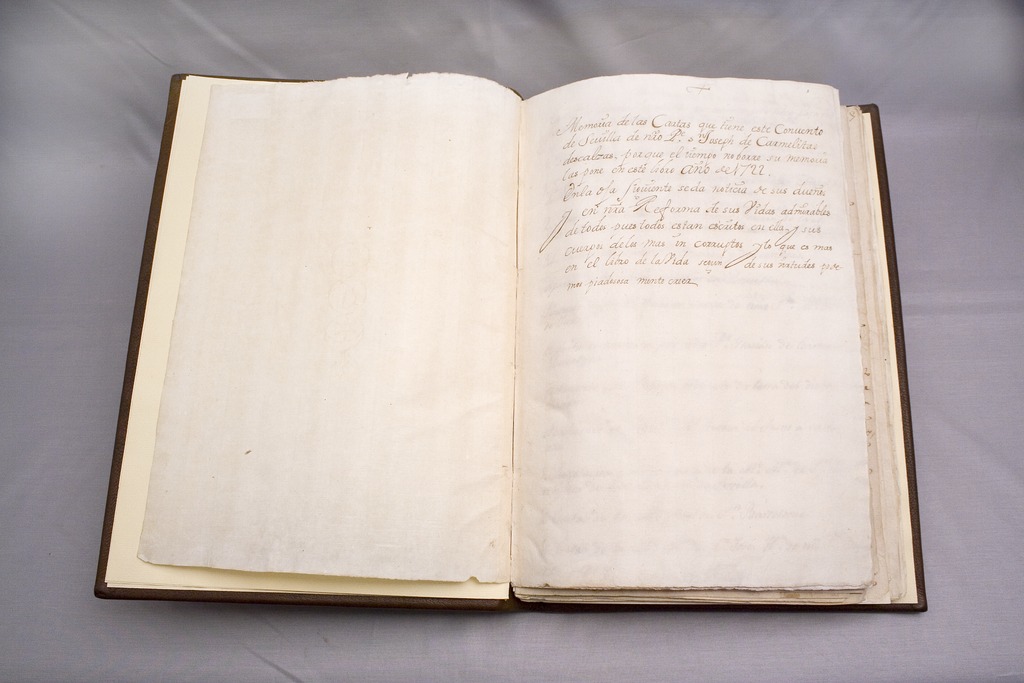 Memoria de las Cartas que tiene este Convento
de Sevilla de nro Pe. Sr Joseph de Carmelitas
descalzas; porque el tiempo no borre su memoria
las pone en este libro Año de 1722.
En la oja siguiente se da noticia de sus dueños
y en nra Reforma de sus Vidas admirables
de todos pues todos estan escritos en ella y sus
cuerpos de los mas in corruptos y lo que es mas
en el libro de la Vida segun de sus virtudes pode
mos piadosa mente creer